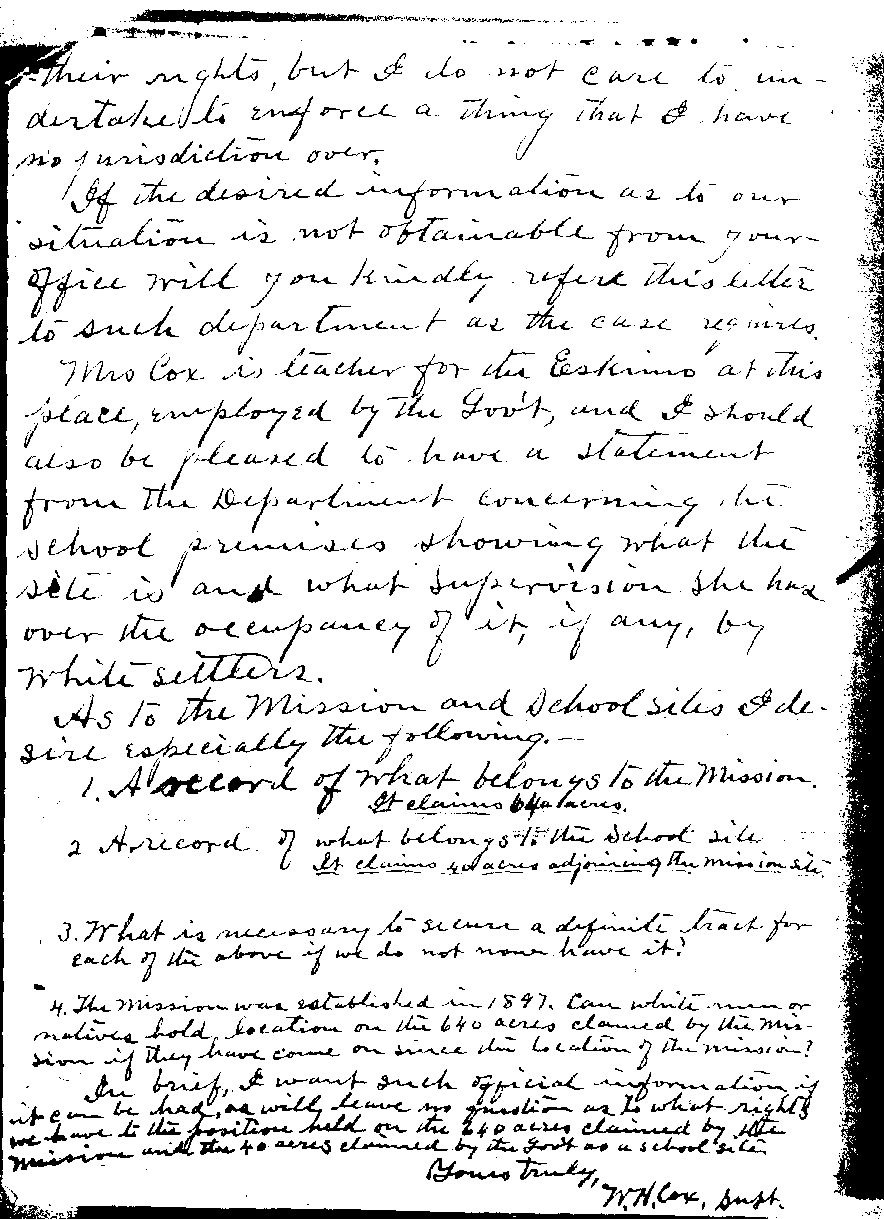 their rights, but I do not care to un-
dertake to enforce a thing that I have
no jurisdiction over.
If the desired information as to our
situation is not obtainable from your
office will you kindly refer this letter
to such department as the case requires.
Mrs Cox is teacher for the Eskimo at this
place, employed by the Gov't, and I should
also be pleased to have a statement
from the Department concerning the
school premises showing what the
site is and what supervision she has
over the occupancy of it, if any, by
white settlers.
As to the Mission and School sites I de-
sire especially the following.—
1. A record of what belongs to the Mission.
It claims 640 acres.
2 A record of what belongs to the School site
It claims 40 acres adjoining the mission site.
3. What is necessary to secure a definite tract for
each of the above if we do not now have it?
4. The Mission was established in 1897. Can white men or
natives hold location on the 640 acres claimed by the Mis-
sion if they have come on since the location of the mission?
In brief, I want such official information if
it can be had, as will leave no question as to what rights
we have to the position held on the 640 acres claimed by the
Mission and the 40 acres claimed by the Gov't as a school site.
Yours truly,
W.H. Cox, Supt.